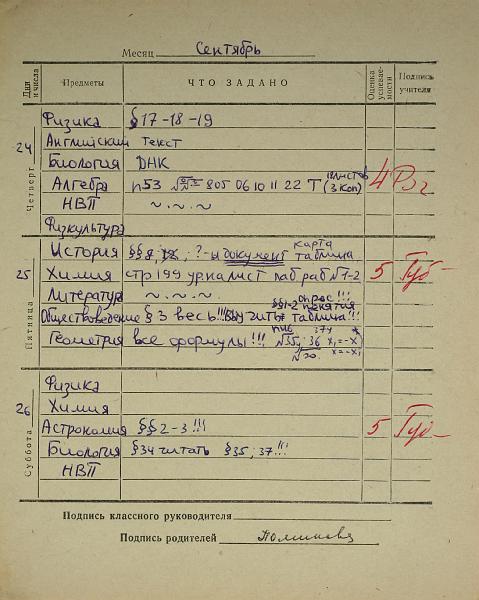 Месяц Сентябрь
Дни и числа Предметы ЧТО ЗАДАНО Оценка успеваемости Подпись учителя
24 Четверг
Физика §17-18-19
Английский Текст
Биология ДНК
Алгебра 805 06 10 11 22 Т 4
НВП ~.~.~
Физкультура
25 Пятница
История §§ ?-ы документ карта таблица
Химия стр 199 лаб раб №1-2 5
Литература ~.~.~
§§1-2 понятия опрос!!!
Обществоведение §3 весь!!! Выучить таблица!!!
Геометрия все формулы!!! №35, 36
26 Суббота
Физика
Химия
Астрономия §§2-3!!! 5
Биология §34 читать §35, 37!!!
НВП
Подпись классного руководителя
Подпись родителей